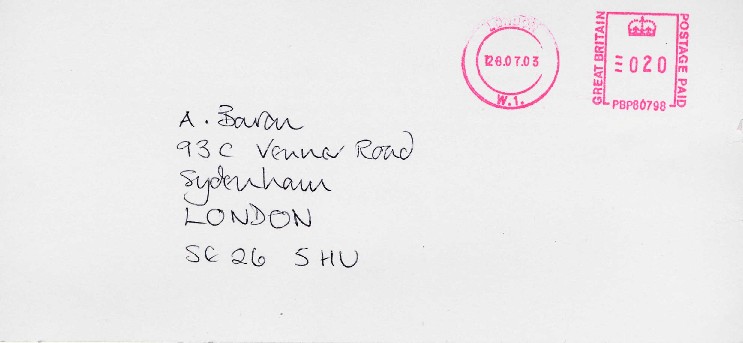 LONDON
28.07.03
W.1.
GREAT BRITAIN
020
POSTAGE PAID
PBP80798
A. Baron
93C Venner Road
Sydenham
LONDON
SE26 5HU